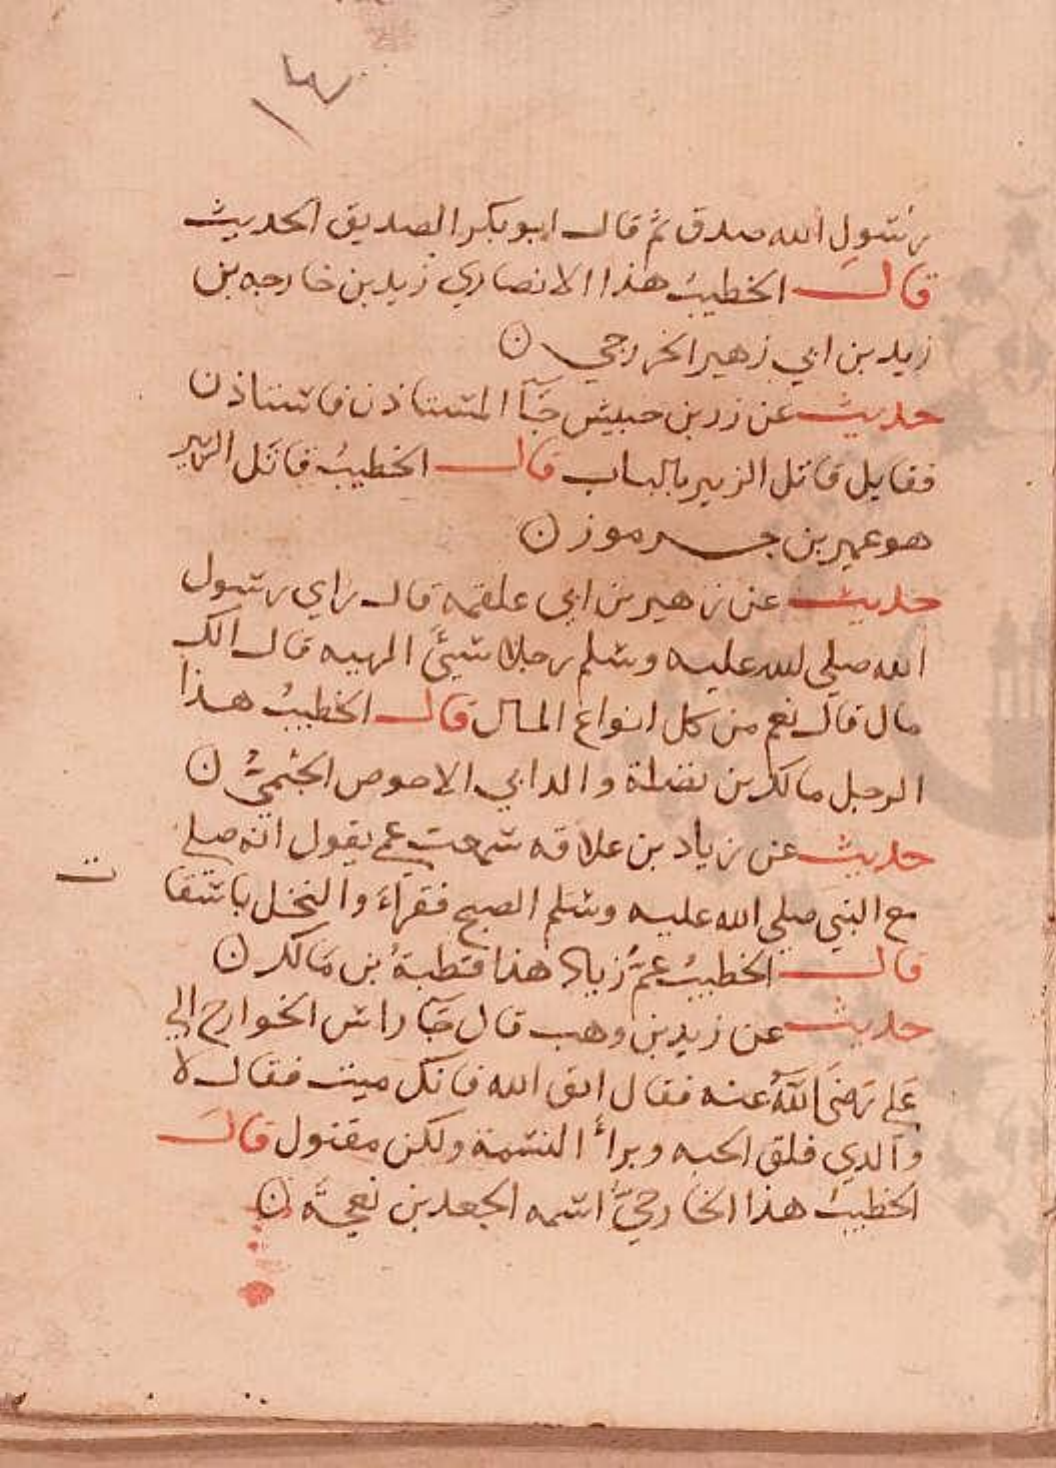 رسول الله صدق ثم قال ابو بكر الصديق الحديث
قال الخطيب هذا الانصاري زيد بن خارجه بن
زيد بن ابي زهير الخزرجي ن
حديث عن زر بن حبيش جآ المستاذن فاستاذن
فقايل قاتل الزبير بالباب قال الخطيبُ قاتل الزبير
هو عمير بن جرموز ن
حديث عن زهير بن ابي علقمه قال راي رسول
الله صلي الله عليه وسلم رجلا سيئ الهيه قال الك
مال قال نعم من كل انواع المال قال الخطيبُ هذا
الرجل مالك بن نضلة والد ابي الاحوص الجشميُّ ن
حديث عن زياد بن علاقه سمعت عمي يقول انه صلي
مع النبي صلي الله عليه وسلم الصبح فقرأ والنخل باسقا
ت
قال الخطيبُ عمُّ زياد هذا قطبةُ بن مالك ن
حديث عن زيد بن وهب قال جآ راس الخوارج الي
علي رضي الله عنه فقال اتق الله فانك ميت فقال لا
والدي فلق الحبه وبرأ النسمة ولكن مقتول قال
الخطيبُ هذا الخارجيُّ اسمه الجعد بن نعجة ن